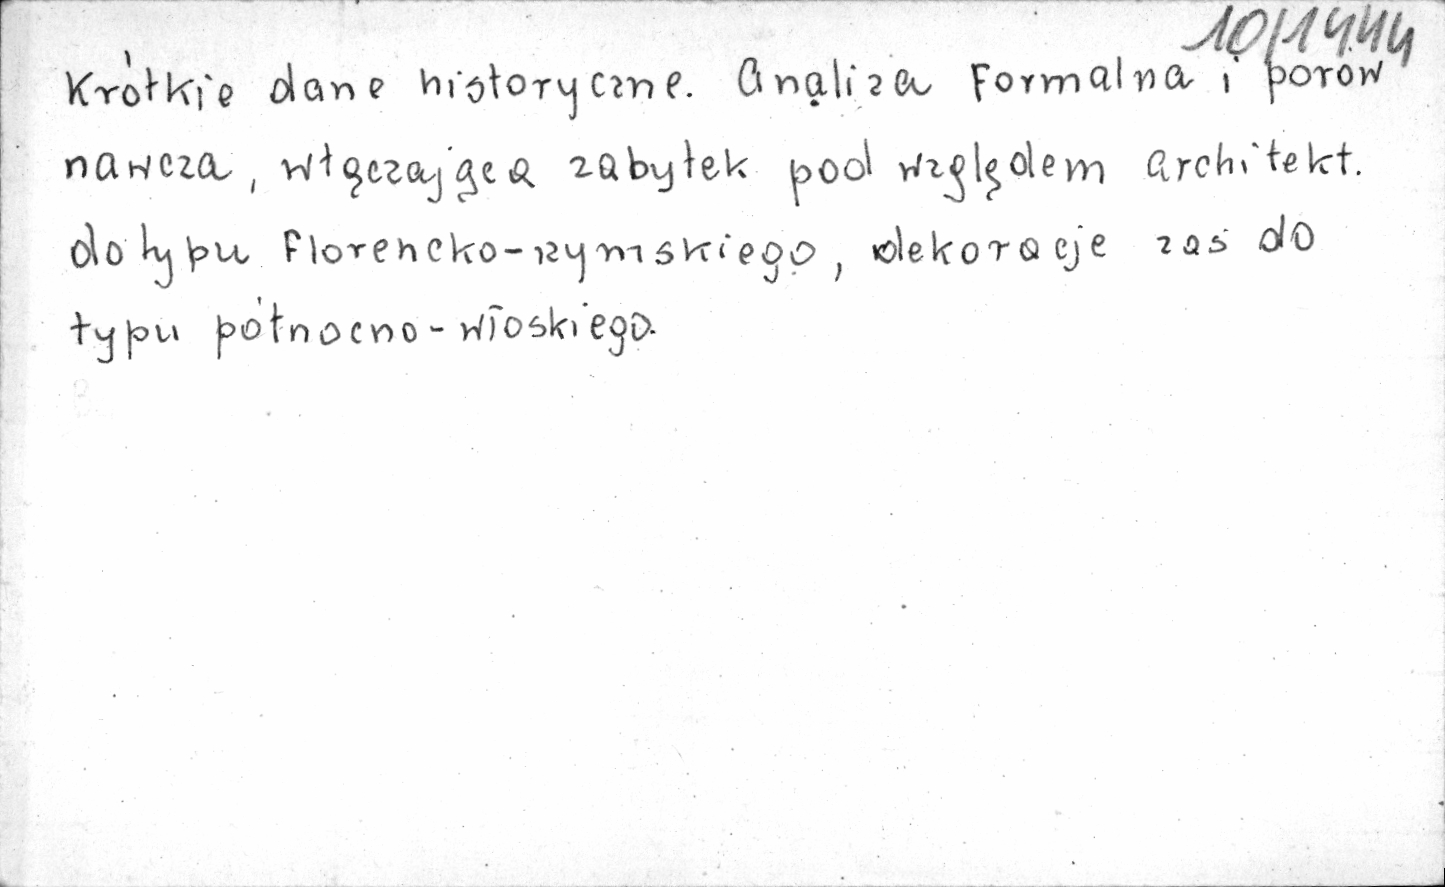 10/1444
Krótkie dane historyczne. Analiza formalna i porów
nawcza, włączająca zabytek pod względem architekt.
do typu florencko-rzymskiego, dekoracje zaś do
typu północno-włoskiego.